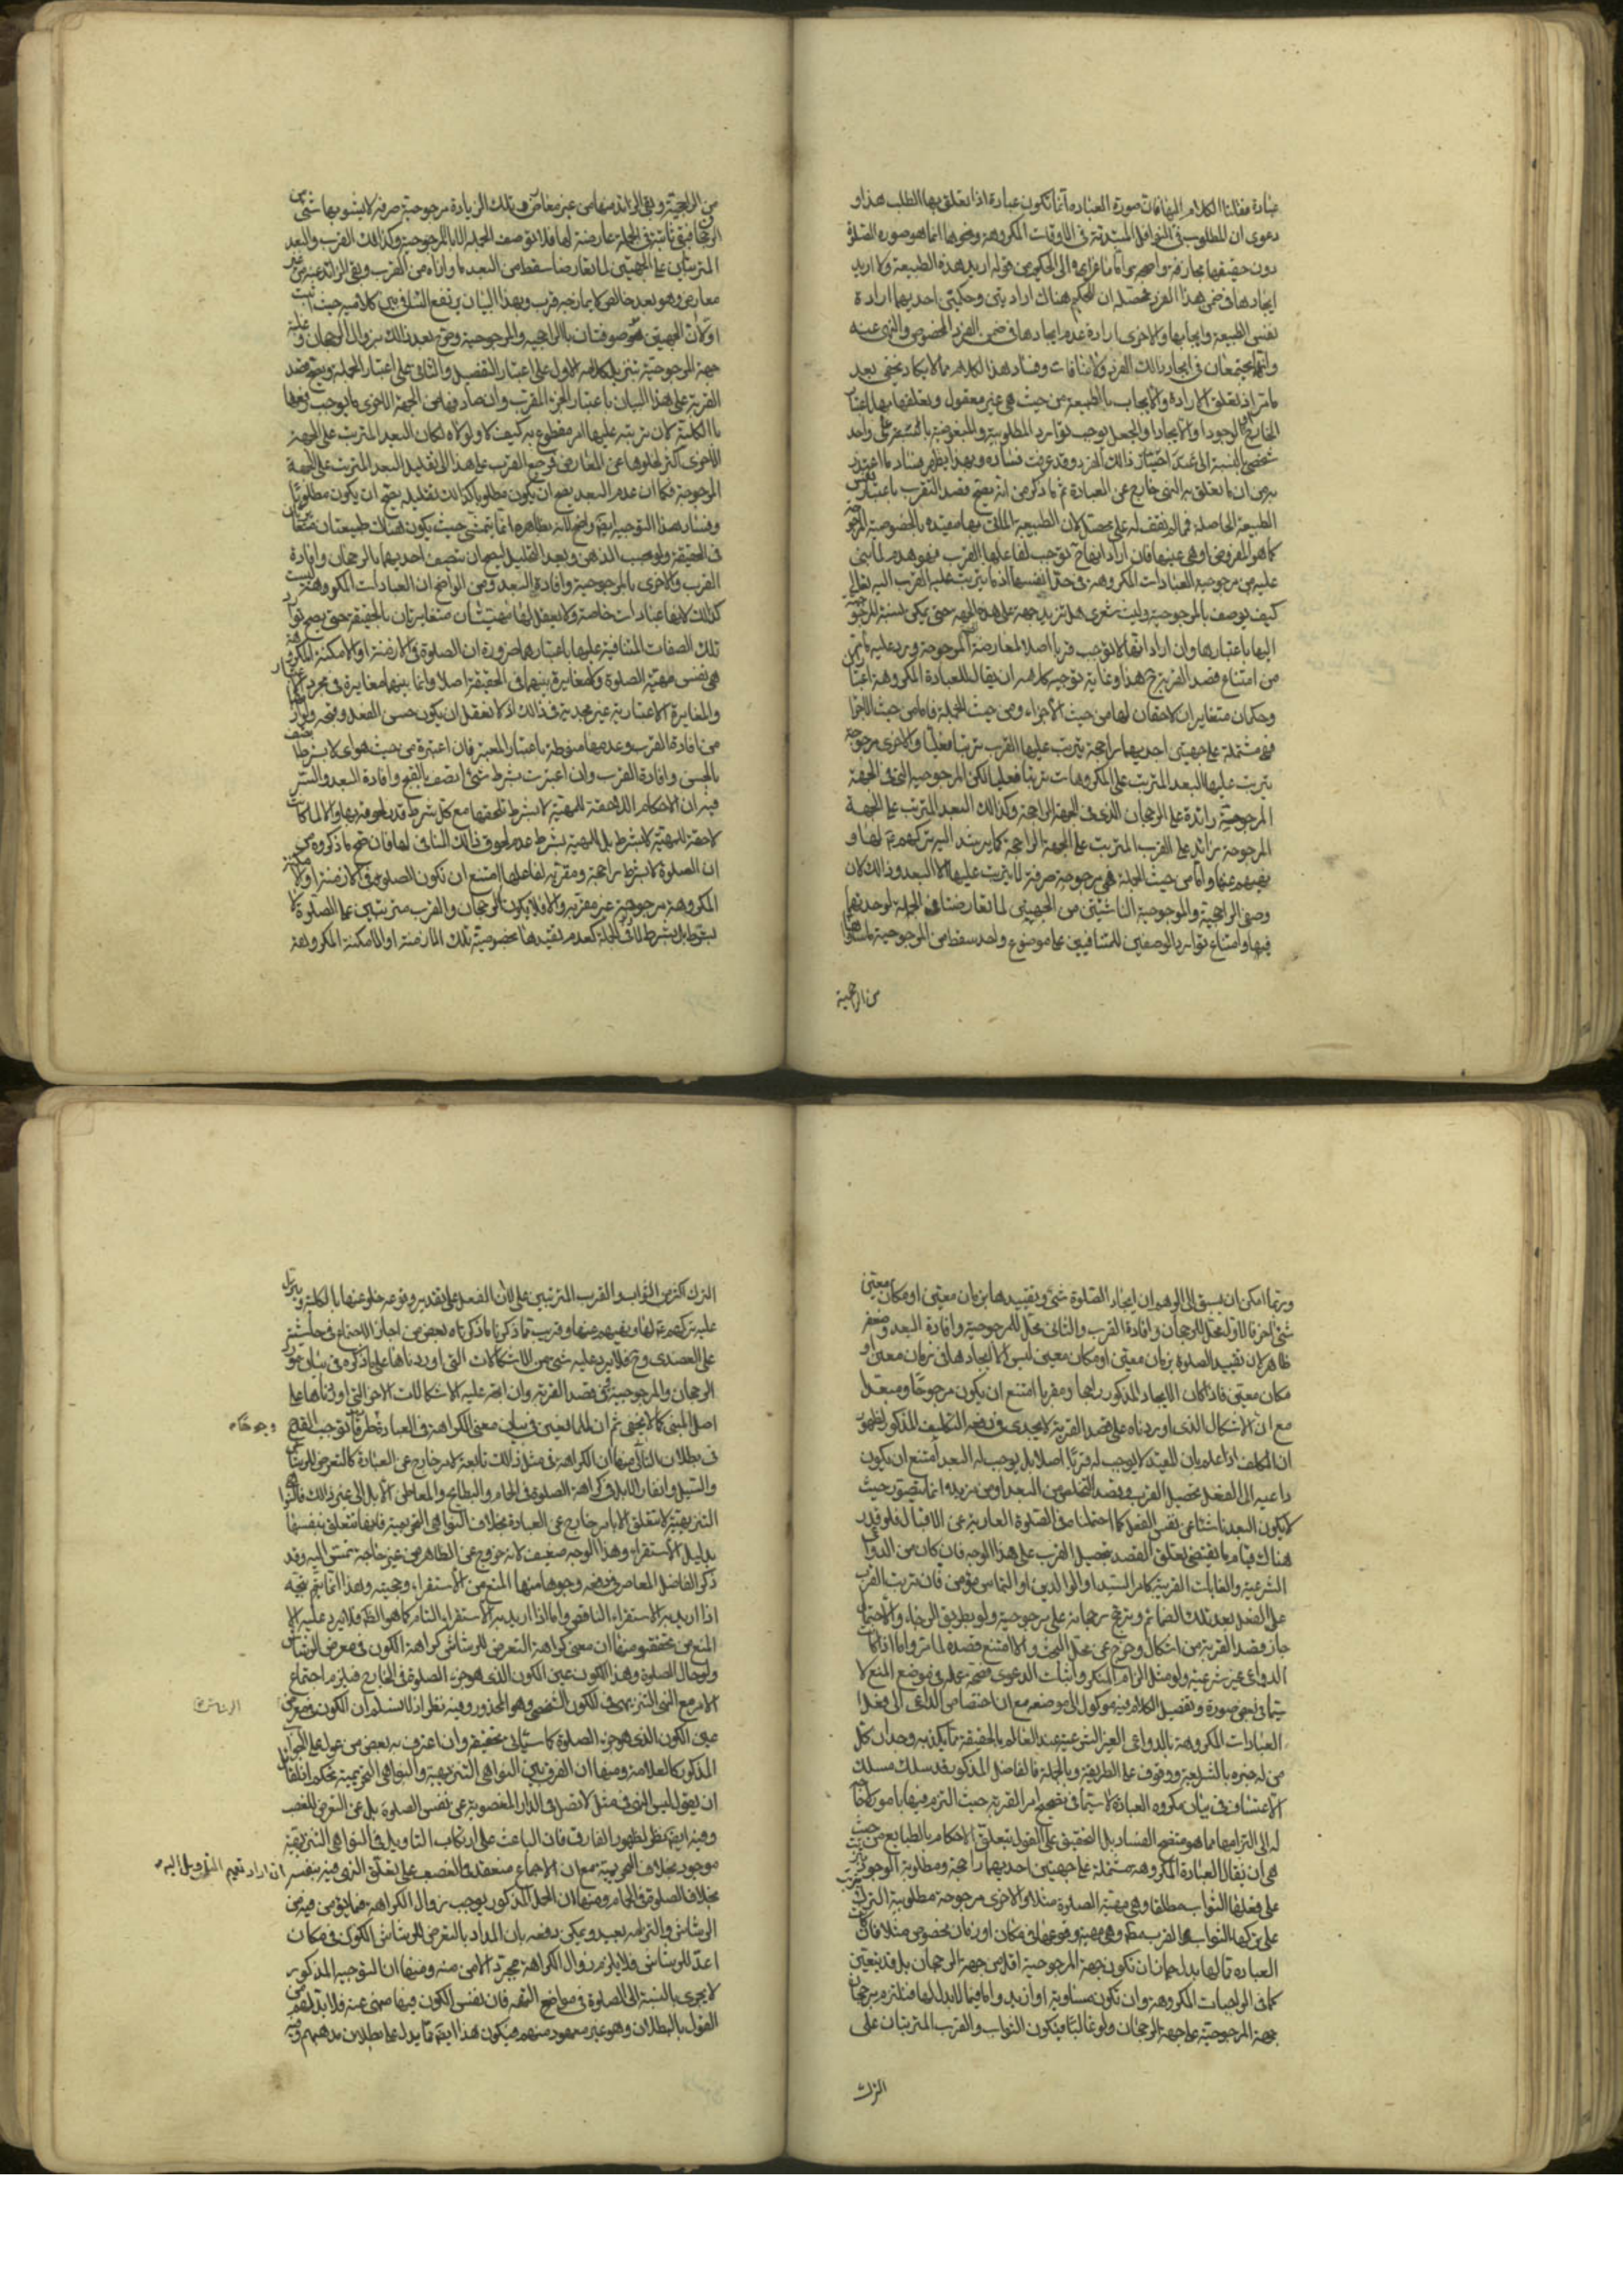 عبادة فقلنا الكلام المنافات صورة العباده انما تكون عبادة اذا تعلق بها الطلب هذا و
دعوى ان المطلوب في النوافل المبتدئة في الاوقات المكروهة ونحوها انما هو صورة الصلوة
دون حقيقتها مجازفة واضحة
ايجادها في ضمن هذا الفرد محصله ان للحكم هناك ارادتين وحكمين احديهما ارادة
نفس الطبيعة وايجابها والاخرى ارادة عدم ايجادها في ضمن الفرد المخصوص والنهي عنه
وانهما يجتمعان في ايجاد ذلك الفرد ولا منافات وفساد هذا الكلام مما لا يكاد يخفى بعد
ما مر اذ تعلق الارادة والايجاب بالطبيعة من حيث هي غير معقول وتعلقهما بها باعتبار
الخارج او الوجود او الايجاد او الجعل يوجب توارد المطلوبية والمبغوضية بالنسبة على واحد
شخصي
به من ان ما تعلق به النهي خارج عن العبادة ثم ما ذكر من انه يصح قصد التقرب باعتبار نفس
الطبيعة الحاصلة فمما لم نقف له على محصل لان الطبيعة الماتى بها مقيدة بالخصوصية المرجوحة
كما هو المفروض او هي عينها فان اراد انها ح توجب لفاعلها القرب فهو هدم لما بنى
عليه من مرجوحية العبادات المكروهة في حد انفسها اذ ما يترتب عليه القرب اليه تعالى
كيف يوصف بالمرجوحية وليت شعري هل تزيد جهة على هذه الجهة حتى يمكن نسبة المرجوحية
اليها باعتبارها وان اراد انها لا توجب قربا اصلا لمعارضة المرجوحة ويرد عليه ما مر
من امتناع قصد القربة ح هذا وغاية توجيه كلامه ان يقال للعبادة المكروهة اعتباران
وحكمان متغايران لاحقان لها من حيث الاجزاء ومن حيث الجملة فاما من حيث الاجزاء
فهي مشتملة على جهتين احديهما راجحة يترتب عليها القرب ترتبا فعليا والاخرى مرجوحة
يترتب عليها البعد المترتب على المكروهات ترتبا فعليا لكن المرجوحية التي في الجهة
المرجوحة زائدة على الرجحان الذي في الجهة الراجحة وكذلك البعد المترتب على الجهة
المرجوحة زائد على القرب المترتب على الجهة الراجحة كما يرشد اليه تركهم لها و
نهيهم عنها واما من حيث الجملة فهي مرجوحة صرفة لا يترتب عليها الا البعد وذلك لان
وصفي الراجحية والمرجوحية الناشئتين من الجهتين لما تعارضتا في الجملة لوحدتهما
فيها وامتناع توارد الوصفين المتنافيين على موضوع واحد سقط من المرجوحية ما ساواها
من الراجحية
من الراجحية وبقي الزائد منها من غير معارض وتلك الزيادة مرجوحية صرفة لا يشوبها شيء من
الرجحان
المترتبان على الجهتين لما تعارضا سقط من البعد ما وازاه من القرب وبقي الزائد عنه من غير
معارض وهو بعد خالص لا يمازجه قرب وبهذا البيان يرتفع التنافي بين كلاميه حيث اثبت
اولا ان الجهتين موصوفتان بالراجحية والمرجوحية وصرح بعد ذلك بزوال الرجحان وغلبة
جهة المرجوحية بتنزيل كلامه الاول على اعتبار التفصيل والثاني على اعتبار الجملة ويصح قصد
القربة على هذا البيان باعتبار الجزء المقرب وان صادفها من الجهة الاخرى ما يوجب رفعها
بالكلية لان ترتبه عليها امر مقطوع به كيف لا ولولاه لكان البعد المترتب على الجهة
الاخرى اكثر لخلوها عن المعارض فمرجع القرب على هذا الى تقليل البعد المترتب على الجهة
المرجوحة فكما ان عدم البعد يصح ان يكون مطلوبا كذلك تقليله يصح ان يكون مطلوبا
وفساد هذا التوجيه ايضا واضح لانه بظاهره انما يتمشى حيث يكون هناك طبيعتان متغايرتان
في الحقيقة
القرب والاخرى بالمرجوحية وافادة البعد ومن الواضح ان العبادات المكروهة ليست
كذلك لانها عبادات خاصة ولا يعقل لها مهيتان متغايرتان بالحقيقة حتى يصح توارد
تلك الصفات المتنافية عليها باعتبارهما ضرورة ان الصلوة في الازمنة او الامكنة المكروهة
هي نفس مهية الصلوة ولا مغايرة بينهما في الحقيقة اصلا وانما بينهما مغايرة في مجرد الاعتبار
والمغايرة الاعتبارية غير مجدية في ذلك اذ لا نعقل ان يكون حسن الفعل وقبحه ولوازمهما
من افادة القرب وعدمها منوطة باعتبار المعتبر فان اعتبره من حيث هو اي لا بشرط اتصف
بالحسن وافادة القرب وان اعتبرت بشرط شيء اتصف بالقبح وافادة البعد والسر
فيه ان الاحكام اللاحقة للمهية لا بشرط تلحقها مع كل شرط قدر لحوقه بها والا لما كانت
لاحقة للمهية لا بشرط بل للمهية بشرط عدم لحوق ذلك المنافي لها فان صح ما ذكروه من
ان الصلوة لا بشرط راجحة ومقربة لفاعلها امتنع ان تكون الصلوة في الازمنة او الامكنة
المكروهة مرجوحة غير مقربة والا فلا يكون الرجحان والقرب مترتبين على الصلوة لا
بشرط بل بشرط
وربما امكن ان يسبق الى الوهم ان ايجاد الصلوة شيء وتقييدها بزمان معين او مكان معين
شيء اخر فالاول محل للرجحان وافادة القرب والثاني محل للمرجوحية وافادة البعد وضعفه
ظاهر لان تقييد الصلوة بزمان معين او مكان معين ليس الا ايجادها في زمان معين او
مكان معين فاذا كان الايجاد المذكور راجحا ومقربا امتنع ان يكون مرجوحا ومبعدا
مع ان الاشكال الذي اوردناه على قصد القربة لا يجدي في دفعه التكليف المذكور لظهور
ان المكلف اذا علم بان المقيد لا يوجب له قربا اصلا بل يوجب له البعد امتنع ان يكون
داعيه الى الفعل تحصيل القرب وقصد التخلص من البعد او من مزيده انما يتصور حيث
لا يكون البعد ناشئا عن نفس الفعل كما احتملنا في الصلوة العارية عن الاقبال فلو قدر
هناك قيام ما يقتضي تعلق القصد بتحصيل القرب على هذا الوجه فان كان من الدواعي
الشرعية والغايات القريبة كامر السيد او الوالدين او التماس مؤمن فان ترتب القرب
على الفعل بعد تلك الضمائم
جاز قصد القربة من اشكال وخرج عن محل البحث والا امتنع قصده لما مر واما اذا كان
الدواعي غير شرعية
يتاتى
العبادات المكروهة بالدواعي الغير الشرعية عند العالم بالحقيقة مما يكذبه وجدان كل
من له خبرة بالشريعة ووقوف على الطريقة وبالجملة فالفاضل المذكور قد سلك مسلك
الاعتساف في بيان مكروه العبادة لا سيما في تصحيح امر القربة حيث التزم فيها بامور لا داعي
له الى التزامها مما هو متضح الفساد بل التحقيق على القول بتعلق الاحكام بالطبايع من حيث
هي ان يقال العبادة المكروهة مشتملة على جهتين احديهما راجحة ومطلوبة الوجود يترتب
على فعلها الثواب مطلقا وهي مهية الصلوة مثلا والاخرى مرجوحة مطلوبية الترك يترتب
على تركها الثواب
العبادة مما لها بدل جاز ان تكون جهة المرجوحية اقل من جهة الرجحان بل قد يتعين
كما في الواجبات المكروهة وان تكون مساوية او ازيد واما فيما لا بدل لها فنلتزم برجحان
جهة المرجوحية على جهة الرجحان ولو غالبا فيكون الثواب والقرب المترتبان على
الترك
الترك اكثر من الثواب والقرب المترتبين على الفعل على تقدير وقوعه خلو عنها بالكلية وينزل
عليه تركهم لها ونهيهم عنها وقريب مما ذكرنا ما ذكره بعض من اجاز الاجتماع في حاشيته
على العضدي وح فلا يرد عليه شيء من الاشكالات التي اوردناها على ما ذكره في بيان توارد
الرجحان والمرجوحية وفي قصد القربة وان اتجه عليه الاشكالات الاخر التي اوردناها على
اصل المبنى كما لا يخفى ثم ان للمانعين في بيان معنى الكراهة في العبادة طرقا
في بطلان
والسيل وانفار الابل في كراهة الصلوة في الحمام والبطايح والمعاطن الابل الى غير ذلك قالوا
التنزيهية لا تتعلق الا بامر خارج عن العبادة بخلاف النواهي التحريمية فانها تتعلق بنفسها
بدليل الاستقراء وهذا الوجه ضعيف لانه خروج عن الظاهر من غير حاجة تمس اليه وقد
ذكر الفاضل المعاصر في دفعه وجوها منها المنع من الاستقراء وحجيته وهذا انما يتجه
اذا اريد به الاستقراء الناقص واما اذا اريد به الاستقراء التام كما هو الظ فلا يرد عليه الا
المنع من تحققه ومنها ان معنى كراهة التعرض للرشاش كراهة الكون في معرض الرشاش
ولو حال الصلوة وهذا الكون عين الكون الذي هو جزء الصلوة في الخارج فيلزم اجتماع
الامر مع النهي التنزيهي في الكون الشخصي وهو المحذور وفيه نظر اذ لا نسلم ان الكون في معرض
الرشاش
عين الكون الذي هو جزء الصلوة كما سياتي تحقيقه وان اعترف به بعض من عول على الجواب
المذكور كالعلامة ومنها ان الفرق بين النواهي التنزيهية والنواهي التحريمية تحكم
ان يقول ليس النهي في مثل لا تصل في الدار المغصوبة عن نفس الصلوة بل عن التعرض للغصب
وفيه ايضا نظر لظهور الفارق فان الباعث على ارتكاب التاويل في النواهي التنزيهية
موجود بخلاف التحريمية مع ان الاجماع منعقد
ان اراد تعميم التاويل اليه
بخلاف الصلوة في الحمام ومنها ان الحمل المذكور يوجب زوال الكراهة فيما يؤمن فيه من
الرشاش والتزامه بعيد ويمكن دفعه بان المراد بالتعرض للرشاش الكون في مكان
اعد للرشاش فلا يلزم زوال الكراهة بمجرد الامن منه ومنها ان التوجيه المذكور
لا يجري بالنسبة الى الصلوة في مواضع التهمة فان نفس الكون فيها منهي عنه فلا بد لهم من
القول بالبطلان وهو غير معهود منهم فيكون هذا ايضا مما يدل على بطلان مذهبهم وفيه